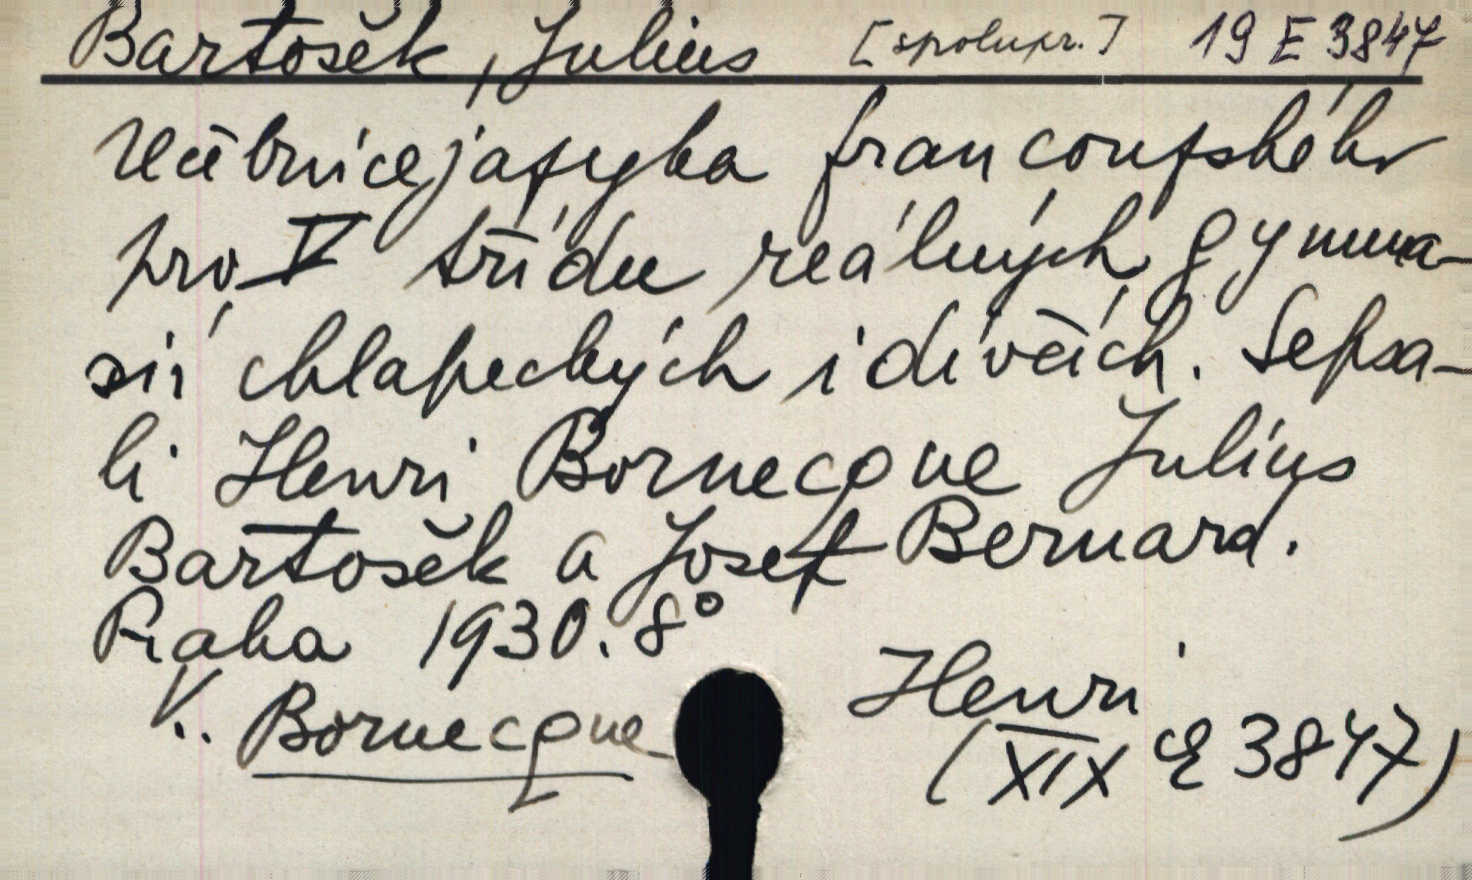 Bartošek, Julius [spolupr.] 19 E 3847
Učebnice jazyka francouzského
pro V třídu reálných gymna-
sií chlapeckých i dívčích. Sepsa-
li Henri Bornecque Julius
Bartošek a Josef Bernard.
Praha 1930. 8°
V.. Bornecque Henri
(XIX E 3847)